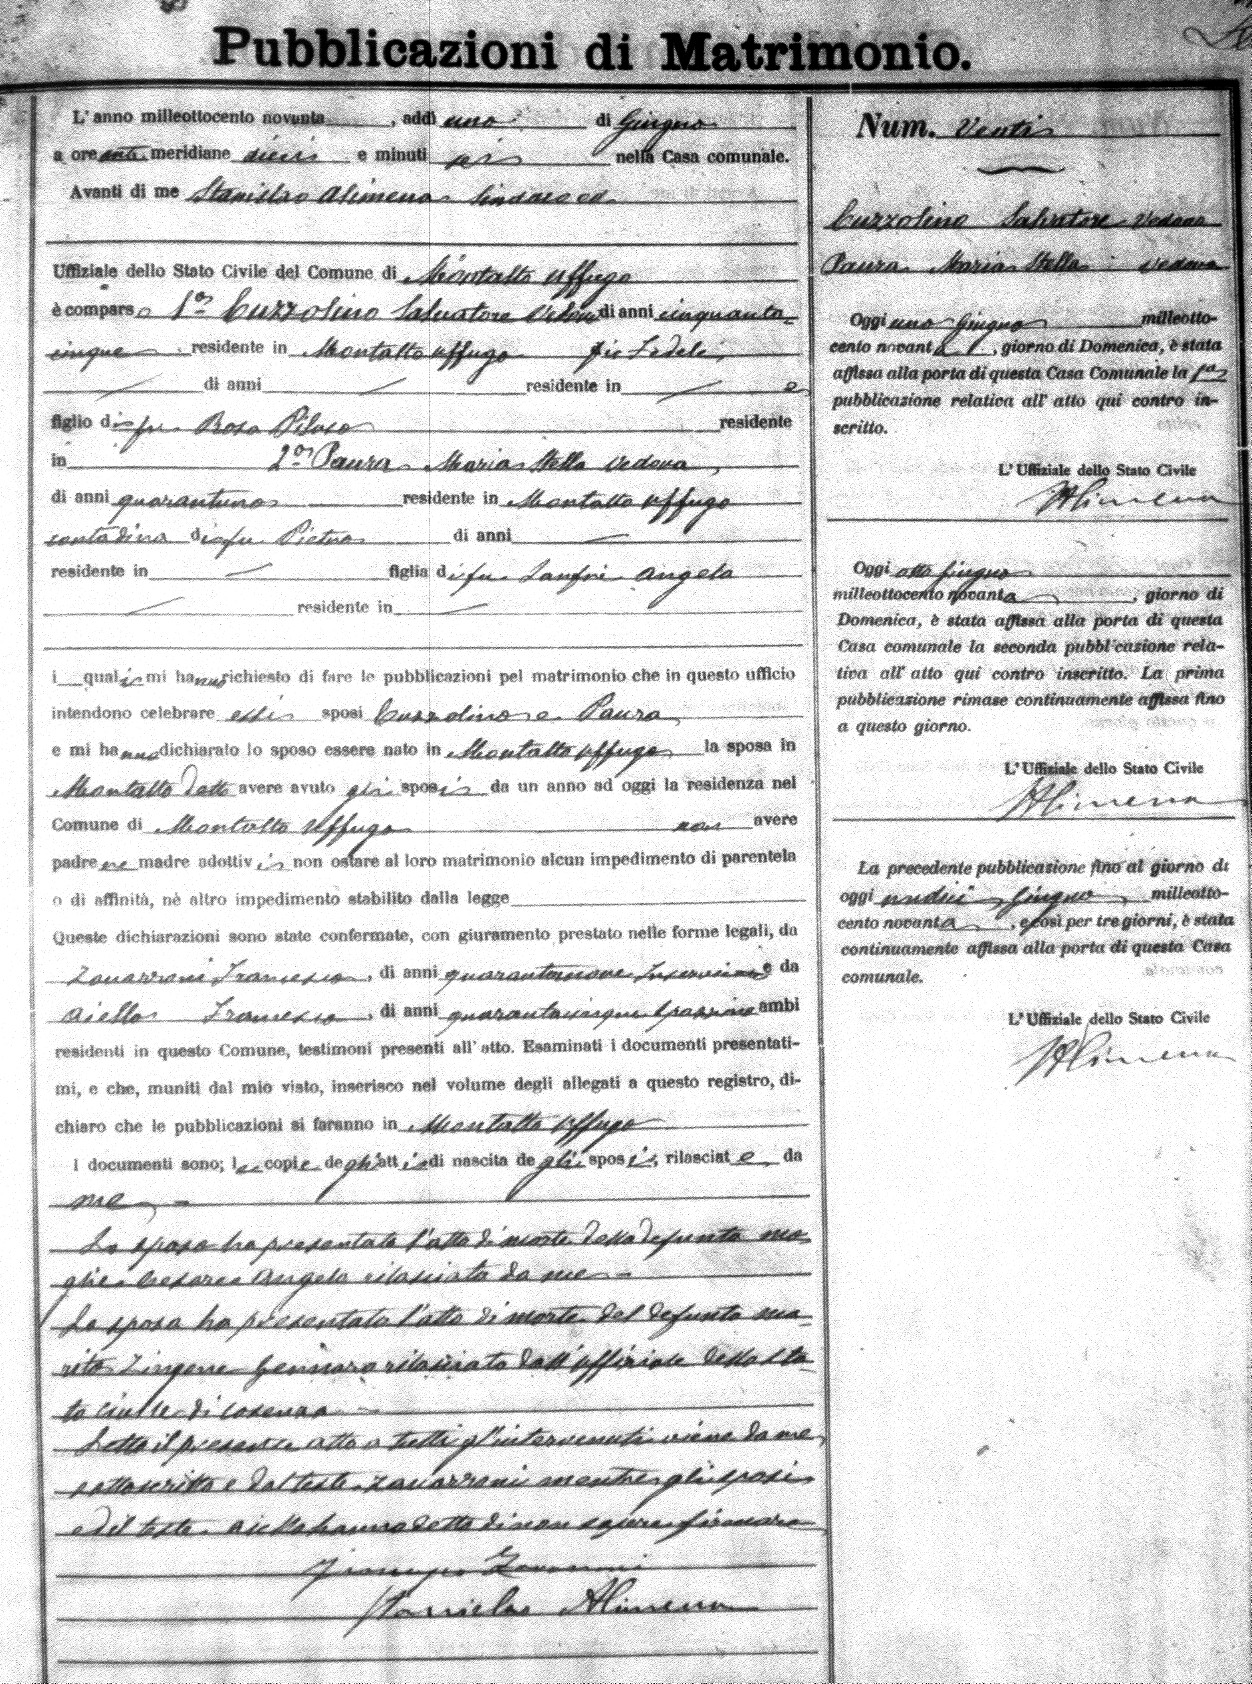 Pubblicazioni di Matrimonio.
L'anno milleottocento novanta, addì uno di Giugno
a ore anti meridiane dieci e minuti sei nella Casa comunale.
Avanti di me Stanislao Alimena Sindaco ed
Uffiziale dello Stato Civile del Comune di Montalto Uffugo
è comparso 1° Cuzzolino Salvatore di anni cinquanta-
cinque residente in Montalto Uffugo fu Fedele
di anni residente in e
figlio di fu Rosa Piluso residente
in 2° Paura Maria Stella vedova,
di anni quarantuno residente in Montalto Uffugo
contadina di fu Pietro di anni
residente in figlia di fu Angela
residente in
i quali mi hanno richiesto di fare le pubblicazioni pel matrimonio che in questo ufficio
intendono celebrare essi sposi Cuzzolino e Paura
e mi hanno dichiarato lo sposo essere nato in Montalto Uffugo la sposa in
Montalto detto avere avuto gli sposi da un anno ad oggi la residenza nel
Comune di Montalto Uffugo non avere
padre ne madre adottivi non ostare al loro matrimonio alcun impedimento di parentela
o di affinità, nè altro impedimento stabilito dalla legge
Queste dichiarazioni sono state confermate, con giuramento prestato nelle forme legali, da
Zavarroni Francesco, di anni quarantanove Inserviente e da
Aiello Francesco, di anni quarantacinque spazzino ambi
residenti in questo Comune, testimoni presenti all'atto. Esaminati i documenti presentati-
mi, e che, muniti dal mio visto, inserisco nel volume degli allegati a questo registro, di-
chiaro che le pubblicazioni si faranno in Montalto Uffugo
I documenti sono; le copie degli atti di nascita degli sposi, rilasciate da
me
Lo sposo ha presentato l'atto di morte della defunta mo-
glie Cesario Angela rilasciato da me
La sposa ha presentato l'atto di morte del defunto ma-
rito Zingone Gennaro rilasciato dall'uffiziale dello sta-
to civile di Cosenza
Letto il presente atto a tutti gl'intervenuti viene da me,
sottoscritto e dal teste Zavarroni mentre gli sposi
ed il teste Aiello hanno detto di non sapere firmare
Zavarroni
Stanislao Alimena
Num. Venti
Cuzzolino Salvatore vedovo
Paura Maria Stella vedova
Oggi uno Giugno milleotto-
cento novanta, giorno di Domenica, è stata
affissa alla porta di questa Casa Comunale la 1a
pubblicazione relativa all'atto qui contro in-
scritto.
L'Uffiziale dello Stato Civile
SAlimena
Oggi otto Giugno
milleottocento novanta, giorno di
Domenica, è stata affissa alla porta di questa
Casa comunale la seconda pubblicazione rela-
tiva all'atto qui contro inscritto. La prima
pubblicazione rimase continuamente affissa fino
a questo giorno.
L'Uffiziale dello Stato Civile
SAlimena
La precedente pubblicazione fino al giorno di
oggi undici Giugno milleotto-
cento novanta, e così per tre giorni, è stata
continuamente affissa alla porta di questa Casa
comunale.
L'Uffiziale dello Stato Civile
SAlimena